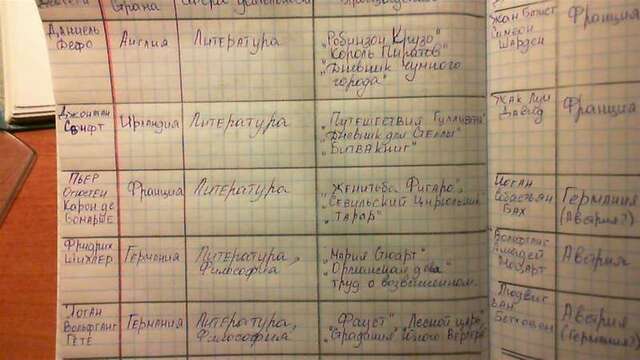 Страна
Даниель
Дефо
Англия
Литература
„Робинзон Крузо"
„Король Пиратов"
„Дневник чумного
города"
Джонатан
Свифт
Ирландия
Литература
„Путешествия Гулливера"
„Дневник для Стеллы"
„Битва книг"
Пьер
Огюстен
Карон де
Бомарше
Франция
Литература
„Женитьба Фигаро",
„Севильский Цирюльник
„Тарар"
Фридрих
Шиллер
Германия
Литература,
Философия
„Мария Стюарт"
„Орлеанская дева"
труд о возвышенном.
Иоган
Вольфганг
Гёте
Германия
Литература,
Философия
„Фауст" „Лесной царь"
„Страдания юного Вертера"
Жан Батист
Симеон
Шарден
Франция
Жак Луи
Давид
Франция
Иоган
Себастьян
Бах
Германия
(Австрия?)
Вольфганг
Амадей
Моцарт
Австрия
Людвиг
ван
Бетховен
Австрия
(Германия?)